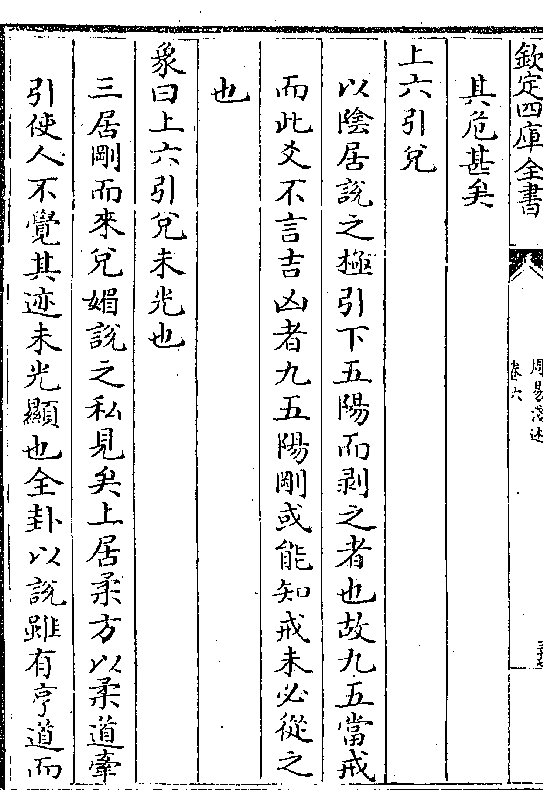 欽定四庫全書
周易
卷六
其危甚矣
上六引兌
以陰居說之極引下五陽而剥之者也故九五當戒
而此爻不言吉凶者九五陽剛或能知戒未必從之
也
象曰上六引兌未光也
三居剛而來兌媚說之私見矣上居柔方以柔道牽
引使人不覺其迹未光顯也全卦以說雖有亨道而